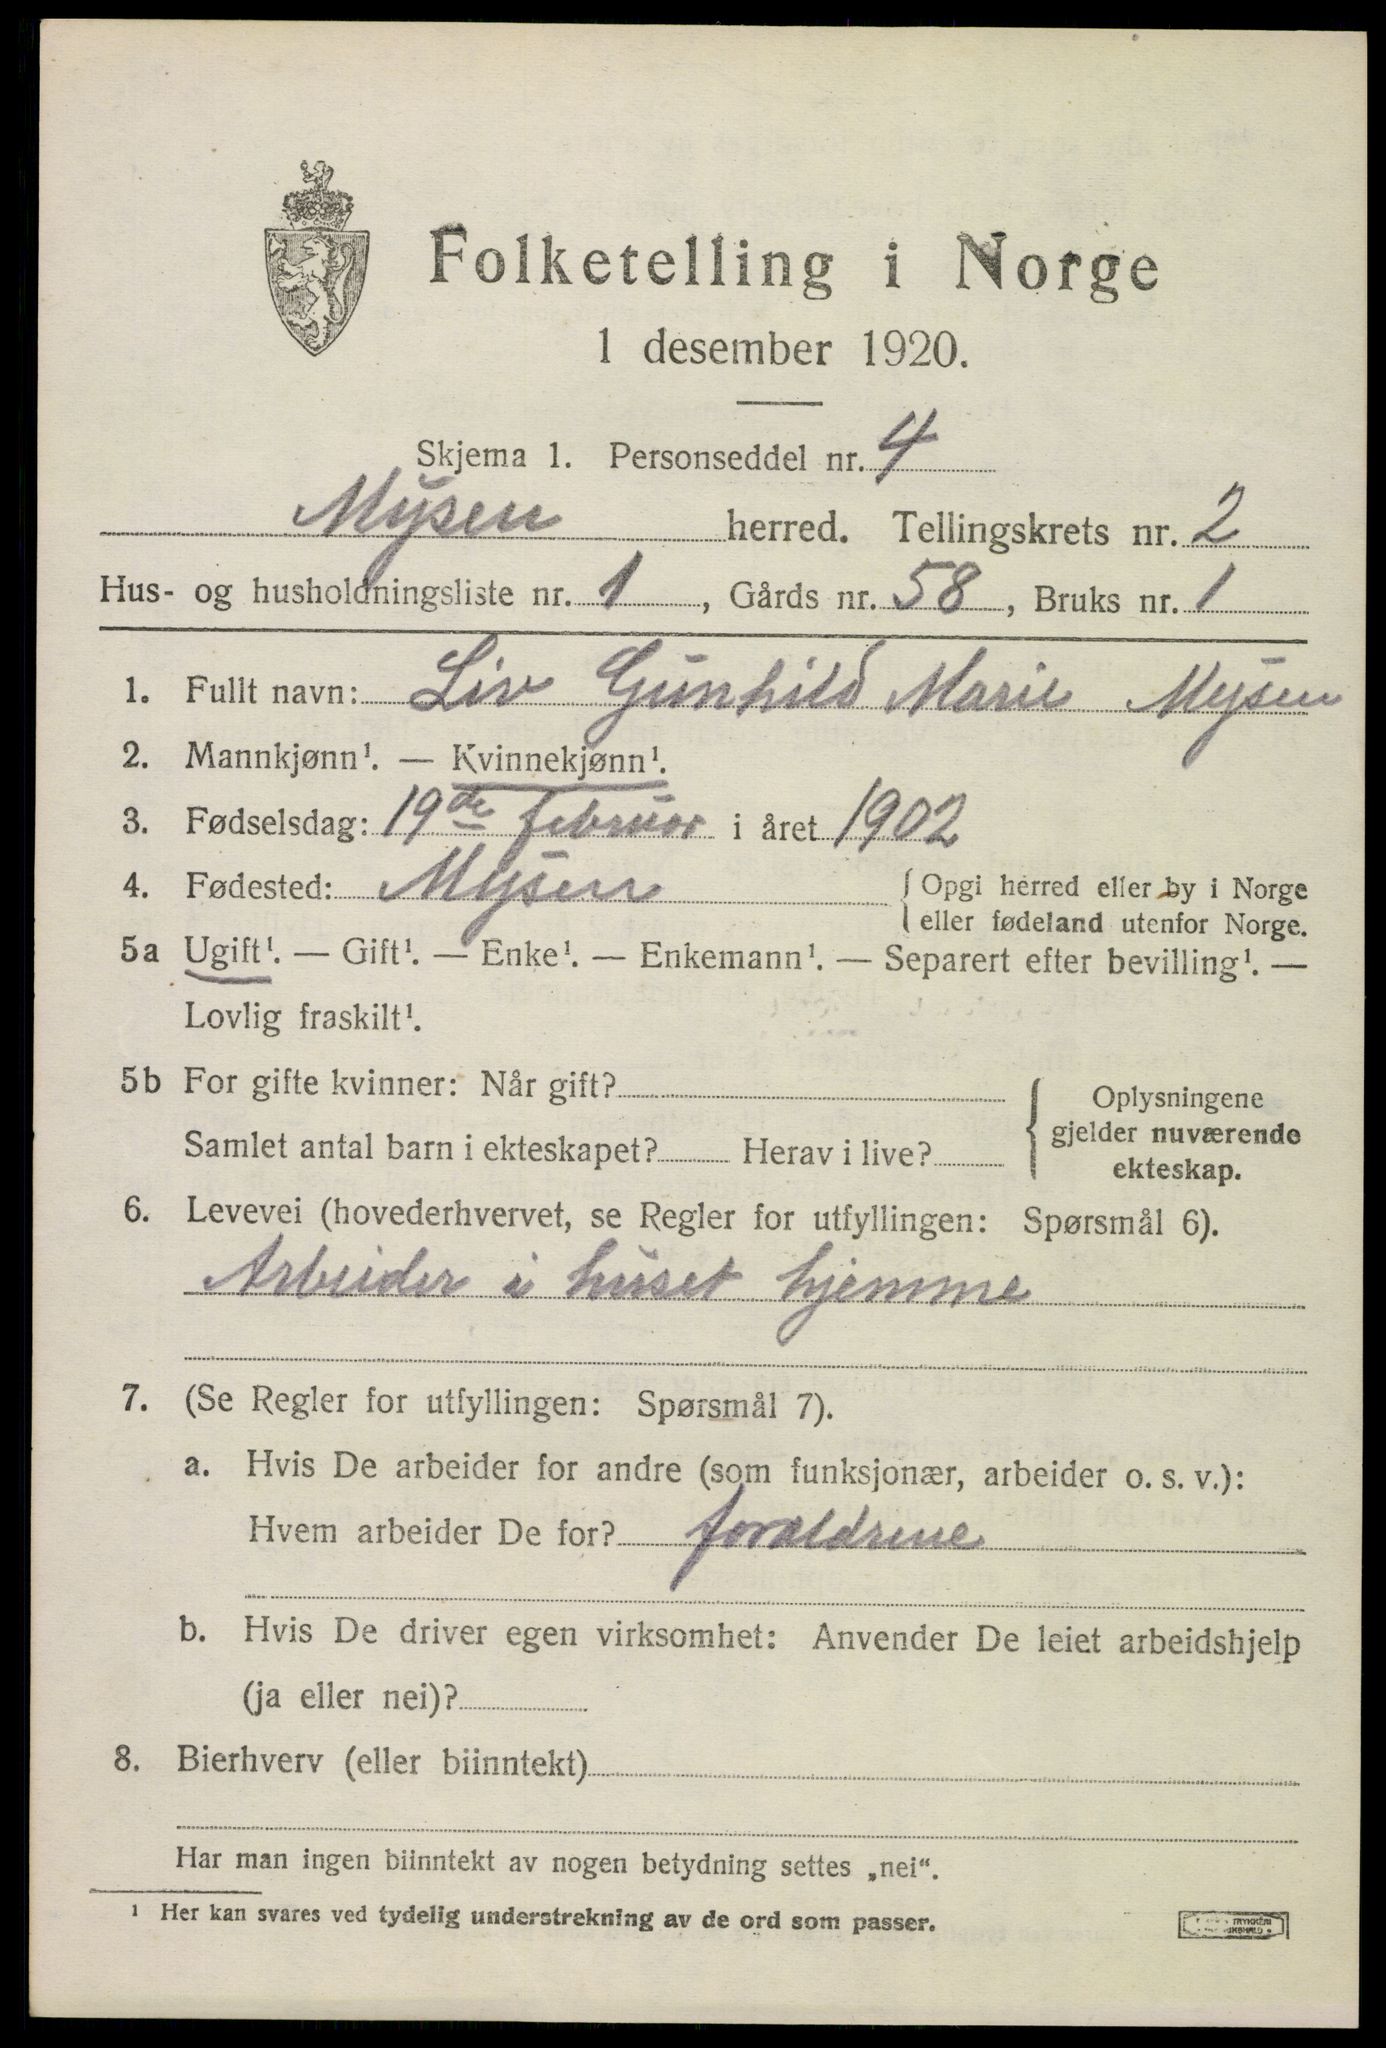 Folketelling i Norge
1 desember 1920.
Skjema 1. Personseddel nr. 4
Mysen herred. Tellingskrets nr. 2
Hus- og husholdningsliste nr. 1, Gårds nr. 58, Bruks nr. 1
1. Fullt navn: Liv Gunhild Marie Mysen
2. Mannkjønn¹. — Kvinnekjønn¹.
3. Fødselsdag: 19de februar i året 1902
4. Fødested: Mysen { Opgi herred eller by i Norge
eller fødeland utenfor Norge.
5a Ugift¹. — Gift¹. — Enke¹. — Enkemann¹. — Separert efter bevilling¹. —
Lovlig fraskilt¹.
5b For gifte kvinner: Når gift? { Oplysningene
gjelder nuværende
Samlet antal barn i ekteskapet? Herav i live?
ekteskap.
6. Levevei (hovederhvervet, se Regler for utfyllingen: Spørsmål 6).
Arbeider i huset hjemme
7. (Se Regler for utfyllingen: Spørsmål 7).
a. Hvis De arbeider for andre (som funksjonær, arbeider o. s. v.):
Hvem arbeider De for? foraldrene
b. Hvis De driver egen virksomhet: Anvender De leiet arbeidshjelp
(ja eller nei)?
8. Bierhverv (eller biinntekt)
Har man ingen biinntekt av nogen betydning settes „nei“.
¹ Her kan svares ved tydelig understrekning av de ord som passer.